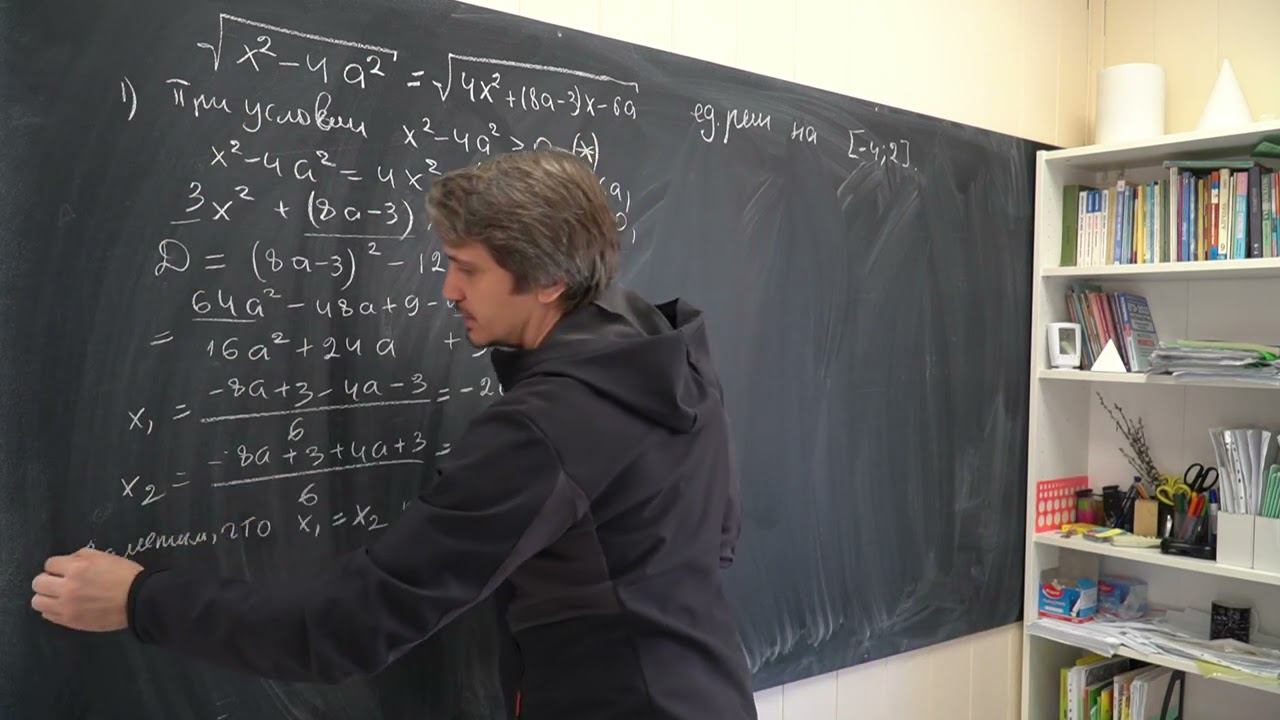 √x²-4a² = √4x²+(8a-3)x-6a ед. реш на [-4;2].
1) При условии x²-4a² ≥ 0 (*)
x²-4a² = 4x² a,
3x² + (8a-3)
D = (8a-3)² - 12
64a² - 48a + 9 -
= 16a² + 24a +
x₁ = -8a+3-4a-3 / 6 = -2
x₂ = -8a+3+4a+3 / 6 =
Заметим, что x₁ = x₂